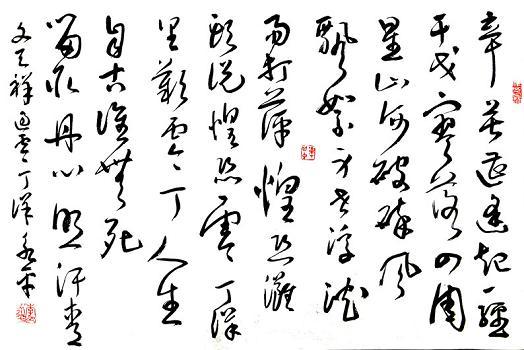 辛苦遭逢起一經
干戈寥落四周
星山河破碎風
飄絮身世浮沉
雨打萍惶恐灘
頭說惶恐零丁洋
里歎零丁人生
自古誰無死
留取丹心照汗青
文天祥過零丁洋